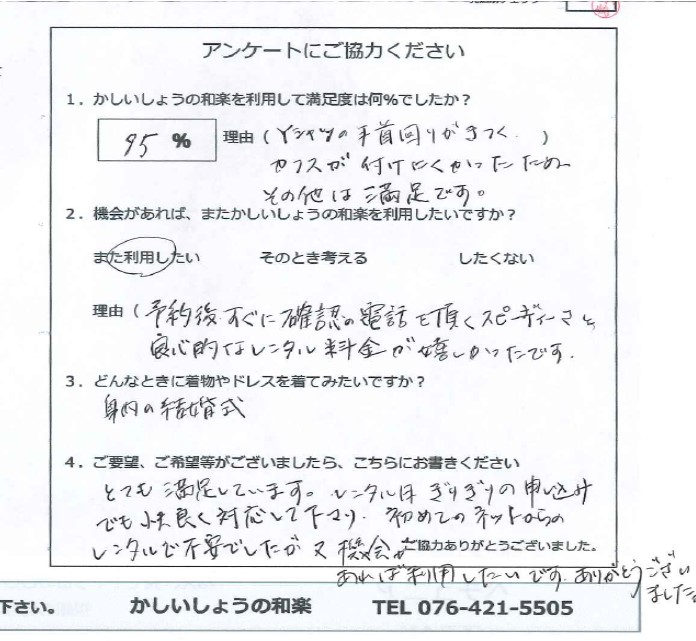 アンケートにご協力ください
1．かしいしょうの和楽を利用して満足度は何％でしたか？
95 % 理由（Yシャツの手首回りがきつく、）
カフスが付けにくかったため
その他は満足です。
2．機会があれば、またかしいしょうの和楽を利用したいですか？
また利用したい そのとき考える したくない
理由（予約後すぐに確認の電話を頂くスピーディーさと
良心的なレンタル料金が嬉しかったです。
3．どんなときに着物やドレスを着てみたいですか？
身内の結婚式
4．ご要望、ご希望等がございましたら、こちらにお書きください
とても満足しています。レンタル日ぎりぎりの申し込み
でも快良く対応して下さり、初めてのネットからの
レンタルで不安でしたが又機会が
ご協力ありがとうございました。
あれば利用したいです。ありがとうござい
ました。
下さい。 かしいしょうの和楽 TEL 076-421-5505